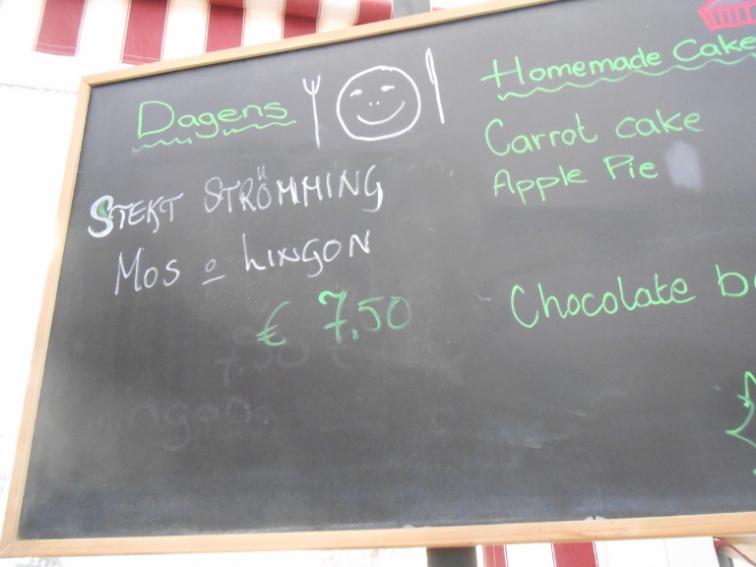 Dagens
STEKT STRÖMMING
MOS o LINGON
€ 7,50
Homemade Cake
Carrot cake
Apple Pie
Chocolate